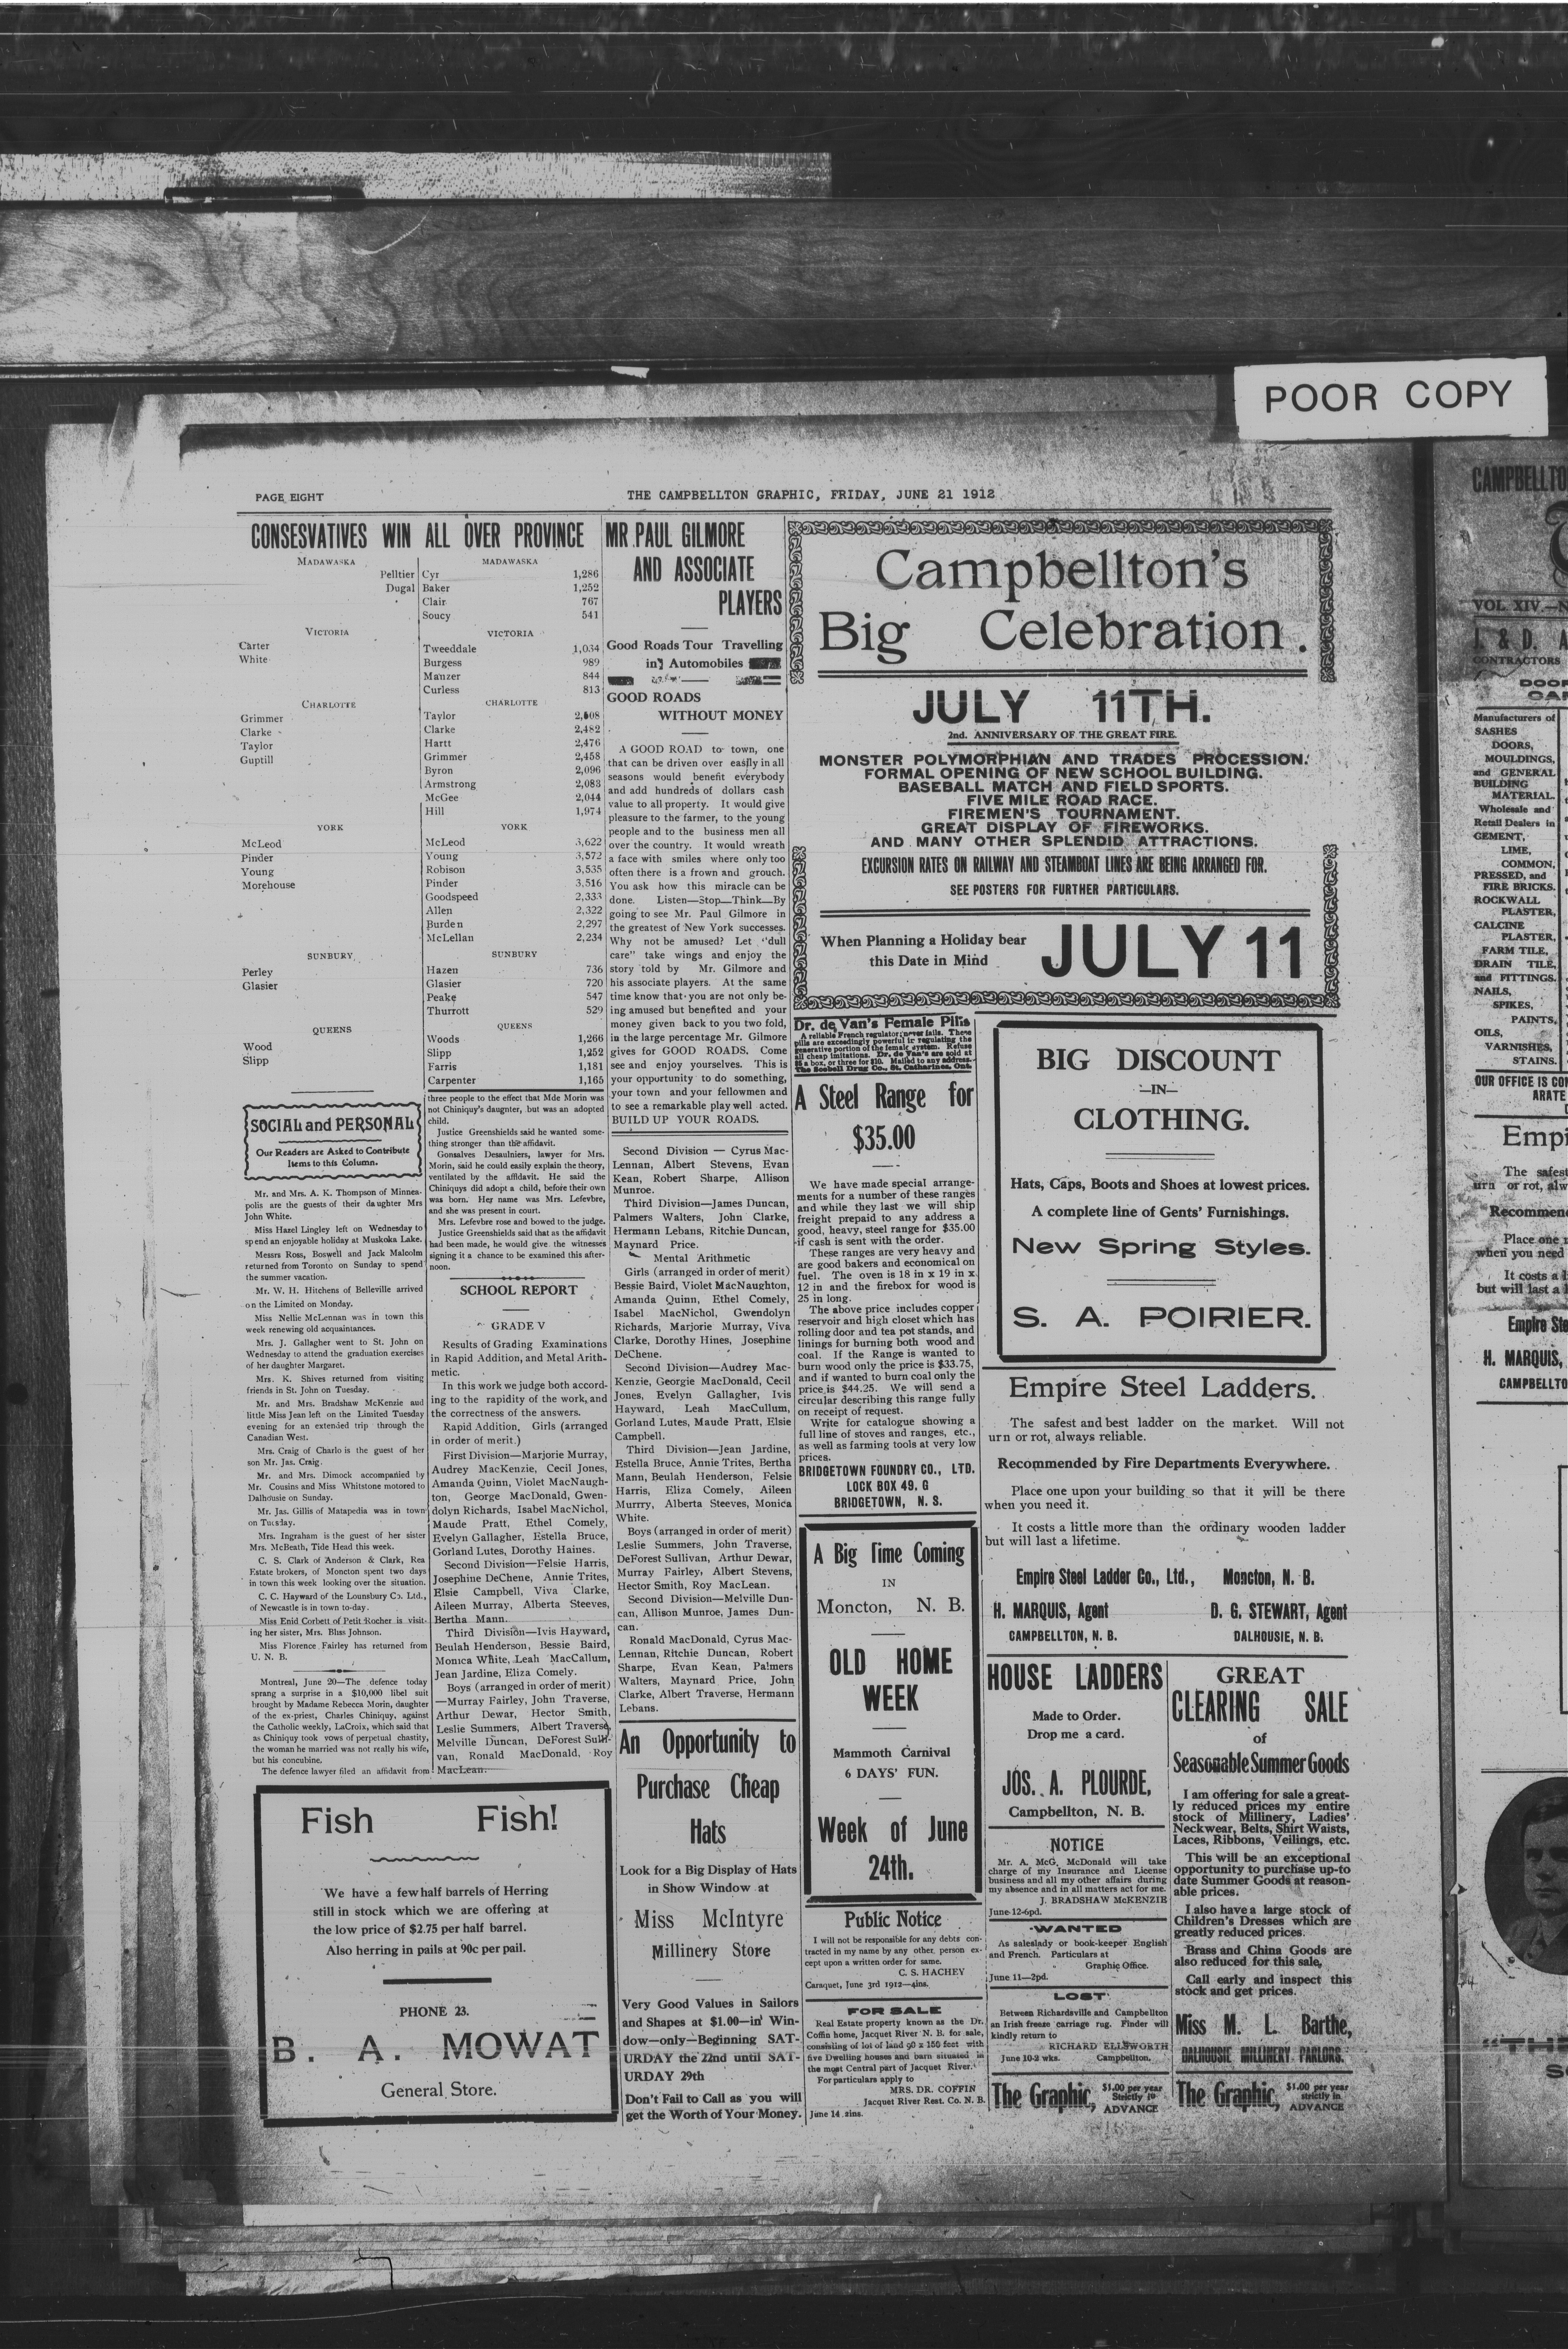 POOR COPY
PAGE EIGHT
THE CAMPBELLTON GRAPHIC, FRIDAY, JUNE 21 1912
CONSESVATIVES WIN ALL OVER PROVINCE
MADAWASKA
Pelltier
Dugal
VICTORIA
Carter
White
CHARLOTTE
Grimmer
Clarke
Taylor
Guptill
YORK
McLeod
Pinder
Young
Morehouse
SUNBURY
Perley
Glasier
QUEENS
Wood
Slipp
MADAWASKA
Cyr 1,286
Baker 1,252
Clair 767
Soucy 541
VICTORIA
Tweeddale 1,034
Burgess 989
Manzer 844
Curless 813
CHARLOTTE
Taylor 2,508
Clarke 2,482
Hartt 2,476
Grimmer 2,458
Byron 2,096
Armstrong 2,083
McGee 2,044
Hill 1,974
YORK
McLeod 3,622
Young 3,572
Robison 3,535
Pinder 3,516
Goodspeed 2,333
Allen 2,322
Burden 2,297
McLellan 2,234
SUNBURY
Hazen 736
Glasier 720
Peake 547
Thurrott 529
QUEENS
Woods 1,266
Slipp 1,252
Farris 1,181
Carpenter 1,165
SOCIAL and PERSONAL
Our Readers are Asked to Contribute
Items to this Column.
Mr. and Mrs. A. K. Thompson of Minnea-
polis are the guests of their daughter Mrs
John White.
Miss Hazel Lingley left on Wednesday to
spend an enjoyable holiday at Muskoka Lake.
Messrs Ross, Boswell and Jack Malcolm
returned from Toronto on Sunday to spend
the summer vacation.
Mr. W. H. Hitchens of Belleville arrived
on the Limited on Monday.
Miss Nellie McLennan was in town this
week renewing old acquaintances.
Mrs. J. Gallagher went to St. John on
Wednesday to attend the graduation exercises
of her daughter Margaret.
Mrs. K. Shives returned from visiting
friends in St. John on Tuesday.
Mr. and Mrs. Bradshaw McKenzie and
little Miss Jean left on the Limited Tuesday
evening for an extended trip through the
Canadian West.
Mrs. Craig of Charlo is the guest of her
son Mr. Jas. Craig.
Mr. and Mrs. Dimock accompanied by
Mr. Cousins and Miss Whitstone motored to
Dalhousie on Sunday.
Mr. Jas. Gillis of Matapedia was in town
on Tuesday.
Mrs. Ingraham is the guest of her sister
Mrs. McBeath, Tide Head this week.
C. S. Clark of Anderson & Clark, Rea
Estate brokers, of Moncton spent two days
in town this week looking over the situation.
C. C. Hayward of the Lounsbury Co. Ltd.,
of Newcastle is in town to-day.
Miss Enid Corbett of Petit Rocher is visit-
ing her sister, Mrs. Bliss Johnson.
Miss Florence Fairley has returned from
U. N. B.
Montreal, June 20—The defence today
sprang a surprise in a $10,000 libel suit
brought by Madame Rebecca Morin, daughter
of the ex-priest, Charles Chiniquy, against
the Catholic weekly, LaCroix, which said that
as Chiniquy took vows of perpetual chastity,
the woman he married was not really his wife,
but his concubine.
The defence lawyer filed an affidavit from
three people to the effect that Mde Morin was
not Chiniquy's daugnter, but was an adopted
child.
Justice Greenshields said he wanted some-
thing stronger than the affidavit.
Gonsalves Desaulniers, lawyer for Mrs.
Morin, said he could easily explain the theory,
ventilated by the affidavit. He said the
Chiniquys did adopt a child, before their own
was born. Her name was Mrs. Lefevbre,
and she was present in court.
Mrs. Lefebvre rose and bowed to the judge.
Justice Greenshields said that as the affidavit
had been made, he would give the witnesses
signing it a chance to be examined this after-
noon.
SCHOOL REPORT
GRADE V
Results of Grading Examinations
in Rapid Addition, and Metal Arith-
metic.
In this work we judge both accord-
ing to the rapidity of the work, and
the correctness of the answers.
Rapid Addition, Girls (arranged
in order of merit.)
First Division—Marjorie Murray,
Audrey MacKenzie, Cecil Jones,
Amanda Quinn, Violet MacNaugh-
ton, George MacDonald, Gwen-
dolyn Richards, Isabel MacNichol,
Maude Pratt, Ethel Comely,
Evelyn Gallagher, Estella Bruce,
Gorland Lutes, Dorothy Haines.
Second Division—Felsie Harris,
Josephine DeChene, Annie Trites,
Elsie Campbell, Viva Clarke,
Aileen Murray, Alberta Steeves,
Bertha Mann.
Third Division—Ivis Hayward,
Beulah Henderson, Bessie Baird,
Monica White, Leah MacCallum,
Jean Jardine, Eliza Comely.
Boys (arranged in order of merit)
—Murray Fairley, John Traverse,
Arthur Dewar, Hector Smith,
Leslie Summers, Albert Traverse,
Melville Duncan, DeForest Sulli-
van, Ronald MacDonald, Roy
MacLean.
Fish Fish!
We have a few half barrels of Herring
still in stock which we are offering at
the low price of $2.75 per half barrel.
Also herring in pails at 90c per pail.
PHONE 23.
B. A. MOWAT
General Store.
MR PAUL GILMORE
AND ASSOCIATE
PLAYERS
Good Roads Tour Travelling
in Automobiles
GOOD ROADS
WITHOUT MONEY
A GOOD ROAD to town, one
that can be driven over easfly in all
seasons would benefit everybody
and add hundreds of dollars cash
value to all property. It would give
pleasure to the farmer, to the young
people and to the business men all
over the country. It would wreath
a face with smiles where only too
often there is a frown and grouch.
You ask how this miracle can be
done. Listen—Stop—Think—By
going to see Mr. Paul Gilmore in
the greatest of New York successes.
Why not be amused? Let "dull
care" take wings and enjoy the
story told by Mr. Gilmore and
his associate players. At the same
time know that you are not only be-
ing amused but benefited and your
money given back to you two fold,
in the large percentage Mr. Gilmore
gives for GOOD ROADS. Come
see and enjoy yourselves. This is
your opportunity to do something,
your town and your fellowmen and
to see a remarkable play well acted.
BUILD UP YOUR ROADS.
Second Division — Cyrus Mac-
Lennan, Albert Stevens, Evan
Kean, Robert Sharpe, Allison
Munroe.
Third Division—James Duncan,
Palmers Walters, John Clarke,
Hermann Lebans, Ritchie Duncan,
Maynard Price.
Mental Arithmetic
Girls (arranged in order of merit)
Bessie Baird, Violet MacNaughton,
Amanda Quinn, Ethel Comely,
Isabel MacNichol, Gwendolyn
Richards, Marjorie Murray, Viva
Clarke, Dorothy Hines, Josephine
DeChene.
Second Division—Audrey Mac-
Kenzie, Georgie MacDonald, Cecil
Jones, Evelyn Gallagher, Ivis
Hayward, Leah MacCullum,
Gorland Lutes, Maude Pratt, Elsie
Campbell.
Third Division—Jean Jardine,
Estella Bruce, Annie Trites, Bertha
Mann, Beulah Henderson, Felsie
Harris, Eliza Comely, Aileen
Murrry, Alberta Steeves, Monica
White.
Boys (arranged in order of merit)
Leslie Summers, John Traverse,
DeForest Sullivan, Arthur Dewar,
Murray Fairley, Albert Stevens,
Hector Smith, Roy MacLean.
Second Division—Melville Dun-
can, Allison Munroe, James Dun-
can.
Ronald MacDonald, Cyrus Mac-
Lennan, Ritchie Duncan, Robert
Sharpe, Evan Kean, Palmers
Walters, Maynard Price, John
Clarke, Albert Traverse, Hermann
Lebans.
An Opportunity to
Purchase Cheap
Hats
Look for a Big Display of Hats
in Show Window at
Miss McIntyre
Millinery Store
Very Good Values in Sailors
and Shapes at $1.00—in Win-
dow—only—Beginning SAT-
URDAY the 22nd until SAT-
URDAY 29th
Don't Fail to Call as you will
get the Worth of Your Money.
Campbellton's
Big Celebration.
JULY 11TH.
2nd. ANNIVERSARY OF THE GREAT FIRE.
MONSTER POLYMORPHIAN AND TRADES PROCESSION.
FORMAL OPENING OF NEW SCHOOL BUILDING.
BASEBALL MATCH AND FIELD SPORTS.
FIVE MILE ROAD RACE.
FIREMEN'S TOURNAMENT.
GREAT DISPLAY OF FIREWORKS.
AND MANY OTHER SPLENDID ATTRACTIONS.
EXCURSION RATES ON RAILWAY AND STEAMBOAT LINES ARE BEING ARRANGED FOR.
SEE POSTERS FOR FURTHER PARTICULARS.
When Planning a Holiday bear
this Date in Mind
JULY 11
Dr. de Van's Female Pills
A reliable French regulator; never fails. These
pills are exceedingly powerful in regulating the
generative portion of the female system. Refuse
all cheap imitations. Dr. de Van's are sold at
$5 a box, or three for $10. Mailed to any address.
The Scobell Drug Co., St. Catharines, Ont.
A Steel Range for
$35.00
We have made special arrange-
ments for a number of these ranges
and while they last we will ship
freight prepaid to any address a
good, heavy, steel range for $35.00
if cash is sent with the order.
These ranges are very heavy and
are good bakers and economical on
fuel. The oven is 18 in x 19 in x
12 in and the firebox for wood is
25 in long.
The above price includes copper
reservoir and high closet which has
rolling door and tea pot stands, and
linings for burning both wood and
coal. If the Range is wanted to
burn wood only the price is $33.75,
and if wanted to burn coal only the
price is $44.25. We will send a
circular describing this range fully
on receipt of request.
Write for catalogue showing a
full line of stoves and ranges, etc.,
as well as farming tools at very low
prices.
BRIDGETOWN FOUNDRY CO., LTD.
LOCK BOX 49. G
BRIDGETOWN, N. S.
A Big Time Coming
IN
Moncton, N. B.
OLD HOME
WEEK
Mammoth Carnival
6 DAYS' FUN.
Week of June
24th.
Public Notice
I will not be responsible for any debts con-
tracted in my name by any other person ex-
cept upon a written order for same.
C. S. HACHEY
Caraquet, June 3rd 1912—4ins.
FOR SALE
Real Estate property known as the Dr.
Coffin home, Jacquet River N. B. for sale,
consisting of lot of land 90 x 156 feet with
five Dwelling houses and barn situated in
the most Central part of Jacquet River.
For particulars apply to
MRS. DR. COFFIN
Jacquet River Rest. Co. N. B.
June 14 2ins.
BIG DISCOUNT
—IN—
CLOTHING.
Hats, Caps, Boots and Shoes at lowest prices.
A complete line of Gents' Furnishings.
New Spring Styles.
S. A. POIRIER.
Empire Steel Ladders.
The safest and best ladder on the market. Will not
urn or rot, always reliable.
Recommended by Fire Departments Everywhere.
Place one upon your building so that it will be there
when you need it.
It costs a little more than the ordinary wooden ladder
but will last a lifetime.
Empire Steel Ladder Co., Ltd., Moncton, N. B.
H. MARQUIS, Agent D. G. STEWART, Agent
CAMPBELLTON, N. B. DALHOUSIE, N. B.
HOUSE LADDERS
Made to Order.
Drop me a card.
JOS. A. PLOURDE,
Campbellton, N. B.
NOTICE
Mr. A. McG. McDonald will take
charge of my Insurance and License
business and all my other affairs during
my absence and in all matters act for me.
J. BRADSHAW McKENZIE
June-12-6pd.
WANTED
As saleslady or book-keeper English
and French. Particulars at
Graphic Office.
June 11—2pd.
LOST
Between Richardsville and Campbellton
an Irish freeze carriage rug. Finder will
kindly return to
RICHARD ELLSWORTH
June 10-2 wks. Campbellton.
The Graphic, $1.00 per year
Strictly in
ADVANCE
GREAT
CLEARING SALE
of
Seasonable Summer Goods
I am offering for sale a great-
ly reduced prices my entire
stock of Millinery, Ladies'
Neckwear, Belts, Shirt Waists,
Laces, Ribbons, Veilings, etc.
This will be an exceptional
opportunity to purchase up-to
date Summer Goods at reason-
able prices.
I also have a large stock of
Children's Dresses which are
greatly reduced prices.
Brass and China Goods are
also reduced for this sale,
Call early and inspect this
stock and get prices.
Miss M. L. Barthe,
DALHOUSIE MILLINERY PARLORS.
The Graphic, $1.00 per year
strictly in
ADVANCE
CAMPBELLTO
VOL. XIV.—N
J. & D. A
CONTRACTORS
DOOR
Manufacturers of
SASHES
DOORS,
MOULDINGS,
and GENERAL
BUILDING
MATERIAL.
Wholesale and
Retail Dealers in
CEMENT,
LIME,
COMMON,
PRESSED, and
FIRE BRICKS.
ROCKWALL
PLASTER,
CALCINE
PLASTER,
FARM TILE,
DRAIN TILE,
and FITTINGS.
NAILS,
SPIKES,
PAINTS,
OILS,
VARNISHES,
STAINS.
OUR OFFICE IS CON
ARATE
Empi
The safest
urn or rot, alw
Recommen
Place one
when you need
It costs a l
but will last a
Empire Ste
H. MARQUIS,
CAMPBELLTO
"TH